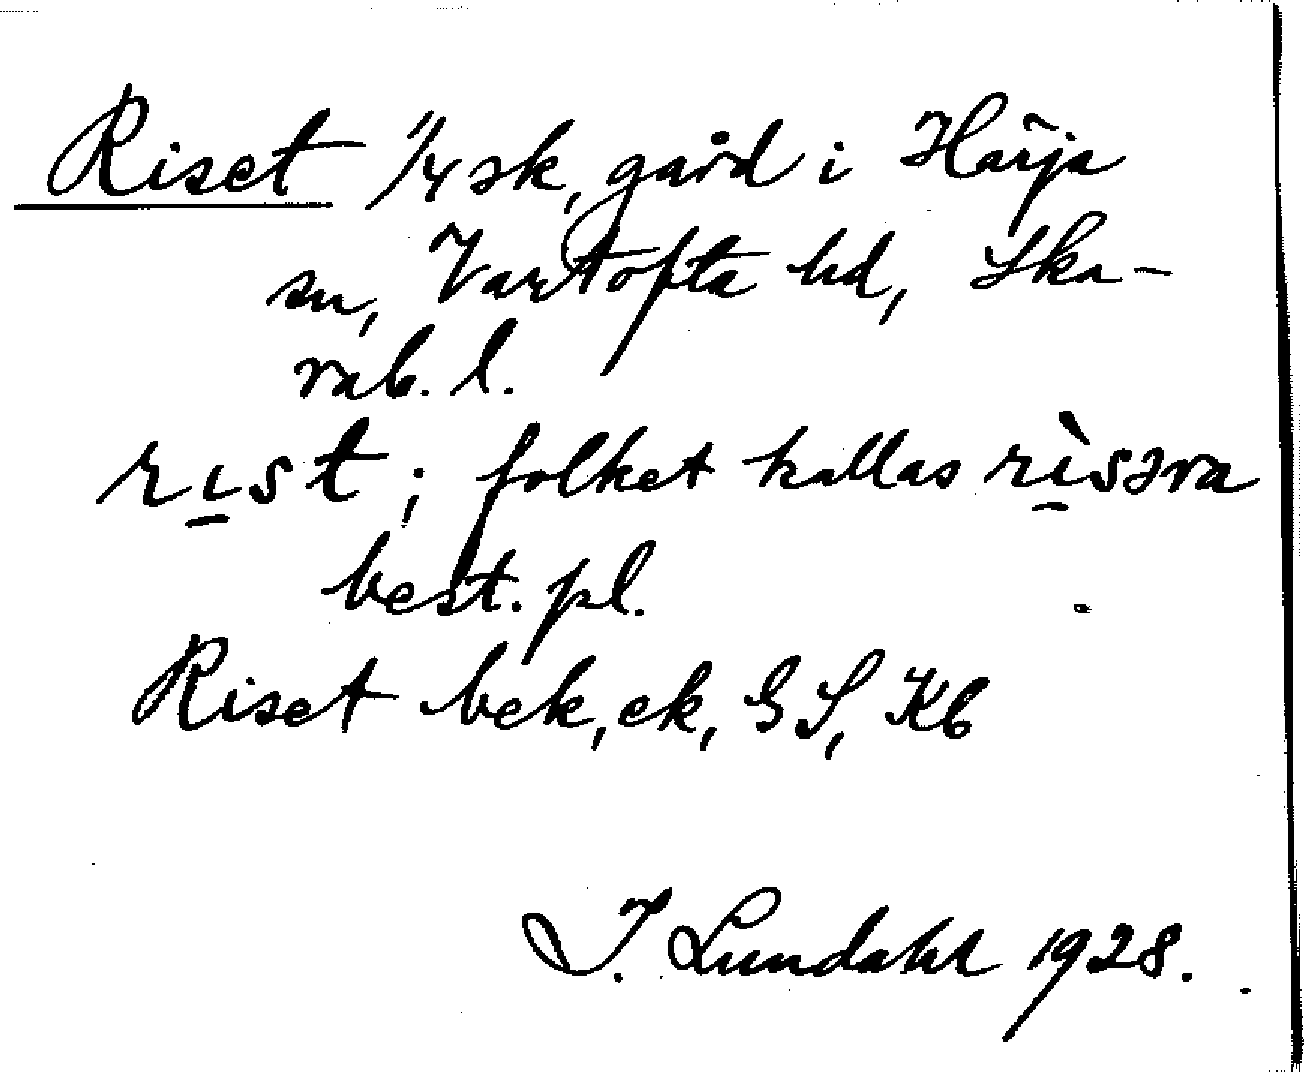 Riset 1/4 sk, gård i Härja
sn, Vartofta hd, Ska-
rab. l.
rıst; folket kallas rı̀səra
best. pl.
Riset bek, ek, GS, Kb
I. Lundahl 1928.